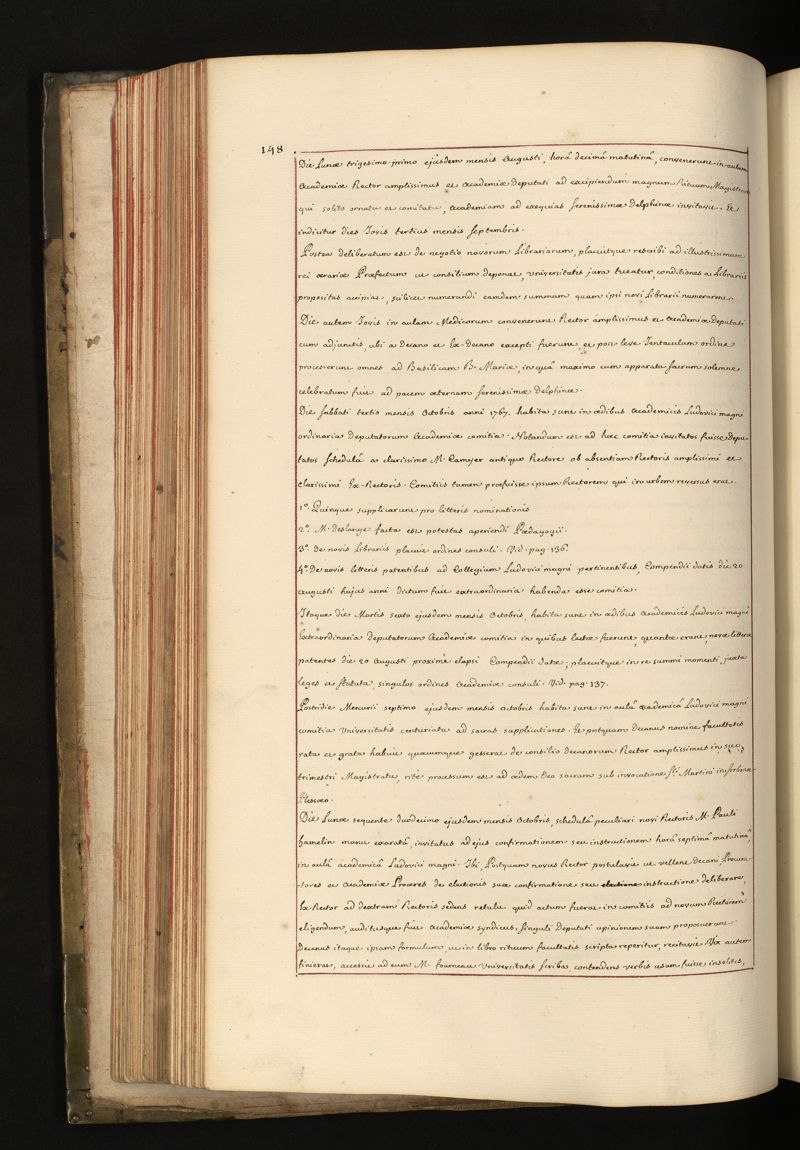 148
Die Lunæ trigesimo-primo ejusdem mensis Augusti, horâ decimâ matutinâ, convenerunt in aulam
Academiæ Rector amplissimus et Academiæ Deputati ad excipiendum magnum Rituum Magistrum
qui solito ornatu et comitatu, Academiam ad exequias serenissimæ Delphinæ invitavit. Et
indicitur dies Jovis tertius mensis septembris.
Postea deliberatum est de negotio novorum Librariorum, placuitque rescribi ad illustrissimum
rei ærariæ Præfectum ut consilium deponat, Universitatis jura tueatur, conditiones a Librariis
propositas accipiat, scilicet numerandi eamdem summam quam ipsi novi Librarii numerarent.
Die autem Jovis in aulam Medicorum convenerunt Rector amplissimus et Academiæ Deputati
cum adjunctis, ubi a Decano et Ex-Decano excepti fuerunt, et post leve Jentaculum ordine
processerunt omnes ad Basilicam B. Mariæ, in quâ maximo cum apparatu sacrum solemne
celebratum fuit ad pacem æternam serenissimæ Delphinæ.
Die sabbati tertio mensis Octobris anni 1767. habita sunt in ædibus Academicis Ludovici magni
ordinaria Deputatorum Academiæ comitia. Notandum est ad hæc comitia invitatos fuisse Depu
tatos schedulâ a clarissimo M. Camyer antiquo Rectore ob absentiam Rectoris amplissimi et
clarissimi Ex-Rectoris. Comitiis tamen præfuisse ipsum Rectorem qui in urbem reversus erat.
1º. Quinque supplicarunt pro litteris nominationis
2º. M. Deslange facta est potestas aperiendi Pædagogii.
3º. de novis Librariis placuit ordines consuli. Vid. pag. 136.
4º. De novis litteris patentibus ad Collegium Ludovici magni pertinentibus, Compendii datis die 20
augusti hujus anni dictum fuit extraordinaria habenda esse comitia.
Itaque die Martis sexto ejusdem mensis Octobris, habita sunt in ædibus Academicis Ludovici magni
Extraordinaria Deputatorum Academiæ comitia in quibus lectæ fuerunt, quantæ erant, novæ litteræ
patentes die 20 Augusti proximè elapsi Compendii datæ; placuitque in re summi momenti, juxta
leges et statuta, singulos ordines Academiæ consuli. Vid. pag. 137.
Postridie Mercurii septimo ejusdem mensis Octobris habita sunt in aulâ academicâ Ludovici magni
comitia Universitatis centuriata ad sacras supplicationes. Et postquam Decanus nomine facultatis
rata et grata habuit quæcumque gesserat de consilio decanorum Rector amplissimus in suo
trimestri Magistratu, ritè processum est ad ædem Deo sacram sub invocatione sti. Martini in sorbonæ
Plessæo.
Die Lunæ sequente duodecimo ejusdem mensis Octobris, schedulâ peculiari novi Rectoris M. Pauli
hamelin manu exaratâ, invitatus ad ejus confirmationem seu instructionem horâ septimâ matutinâ,
in aulâ academicâ Ludovici magni. Ibi, Postquam novus Rector postulavit ut vellent Decani, Procura
-tores et Academiæ Proceres de electionis suæ confirmatione seu electione instructione deliberare,
Ex-Rector ad dextram Rectoris sedens retulit quid actum fuerat in comitiis ad novum Rectorem
eligendum, auditusque fuit Academiæ syndicus, singuli Deputati opinionem suam proposuerunt.
Decanus itaque ipsam formulam ut in libro rituum facultatis scripta reperitur, recitavit. Vix autem
finierat, accessit ad eum M. fourneau Universitatis scriba, contendens verbis usum fuisse insolitis,